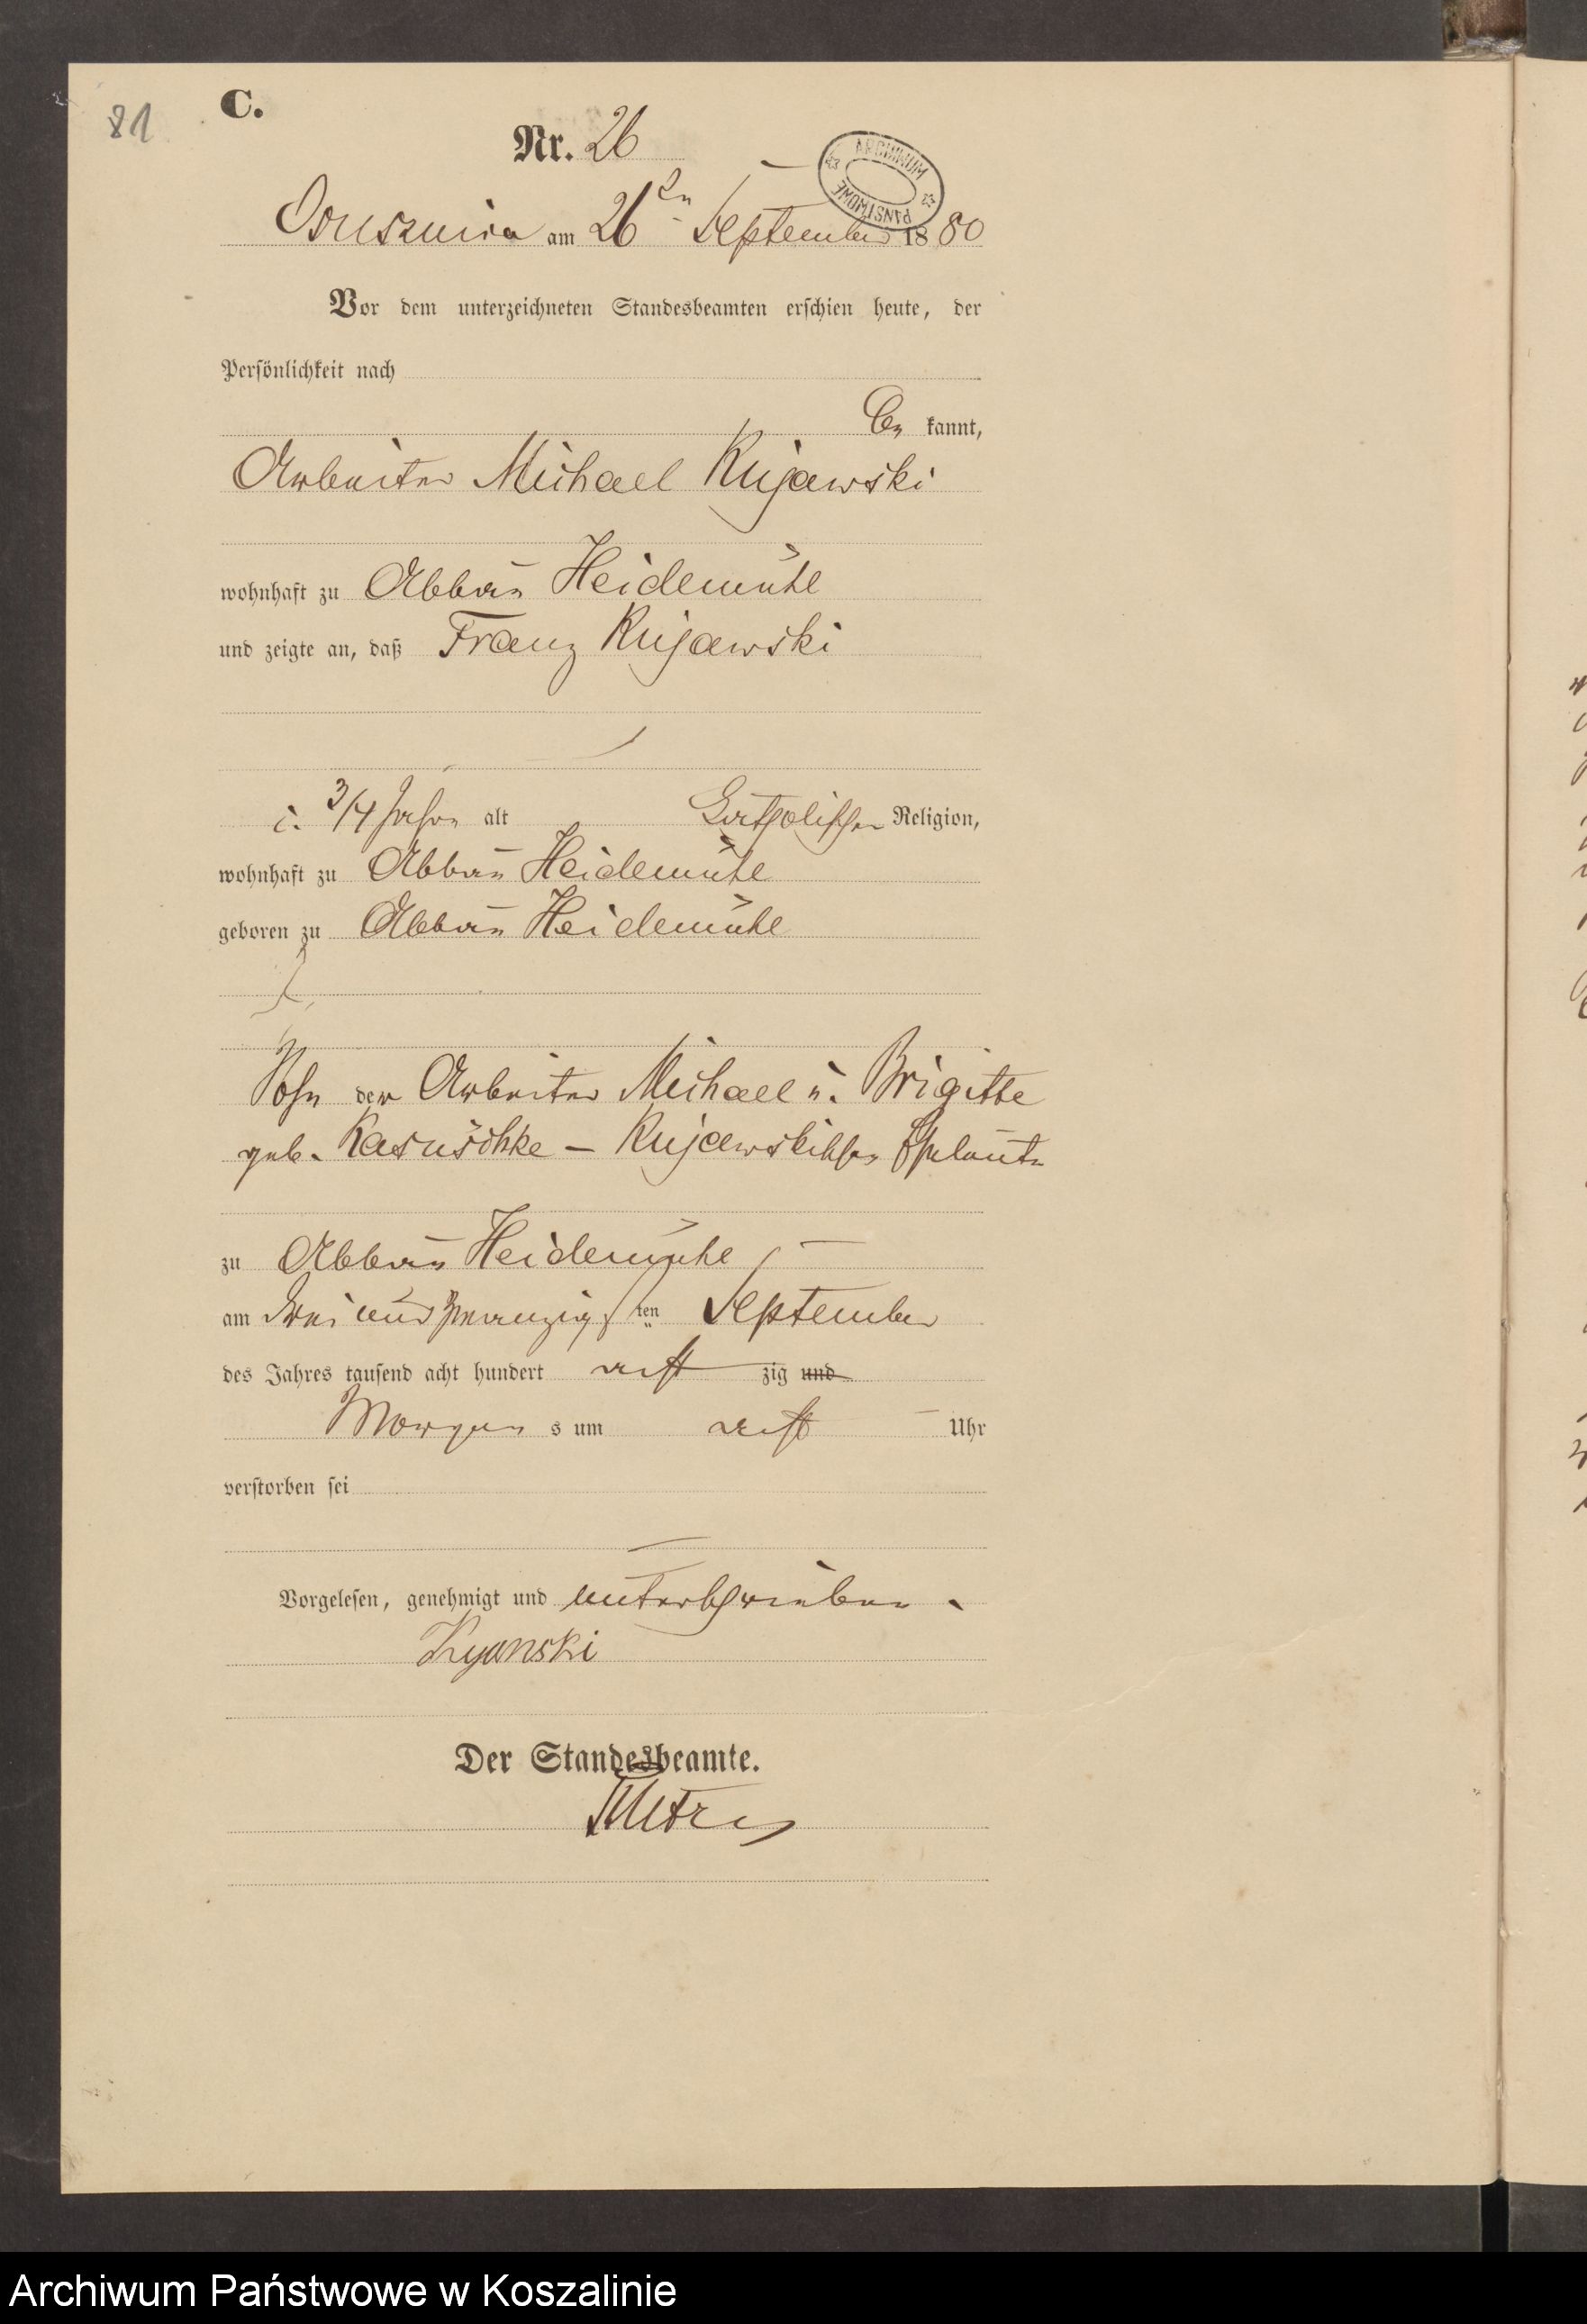 81
C.
Nr. 26
ARCHIWUM PAŃSTWOWE
am 26 September 1880
Vor dem unterzeichneten Standesbeamten erschien heute, der
Persönlichkeit nach
be kannt,
Arbeiter Michael Kujawski
wohnhaft zu Abbau Heidemühl
und zeigte an, daß Franz Kujawski
3/4 Jahr alt katholischer Religion,
wohnhaft zu Abbau Heidemühl
geboren zu Abbau Heidemühl
Sohn der Arbeiter Michael u. Brigitte
geb. – Kujawskischen Eheleute
zu Abbau Heidemühl
am zwanzigsten September
des Jahres tausend acht hundert acht zig und
Morgen s um acht Uhr
verstorben sei
Vorgelesen, genehmigt und unterschrieben.
Der Standesbeamte.
Archiwum Państwowe w Koszalinie